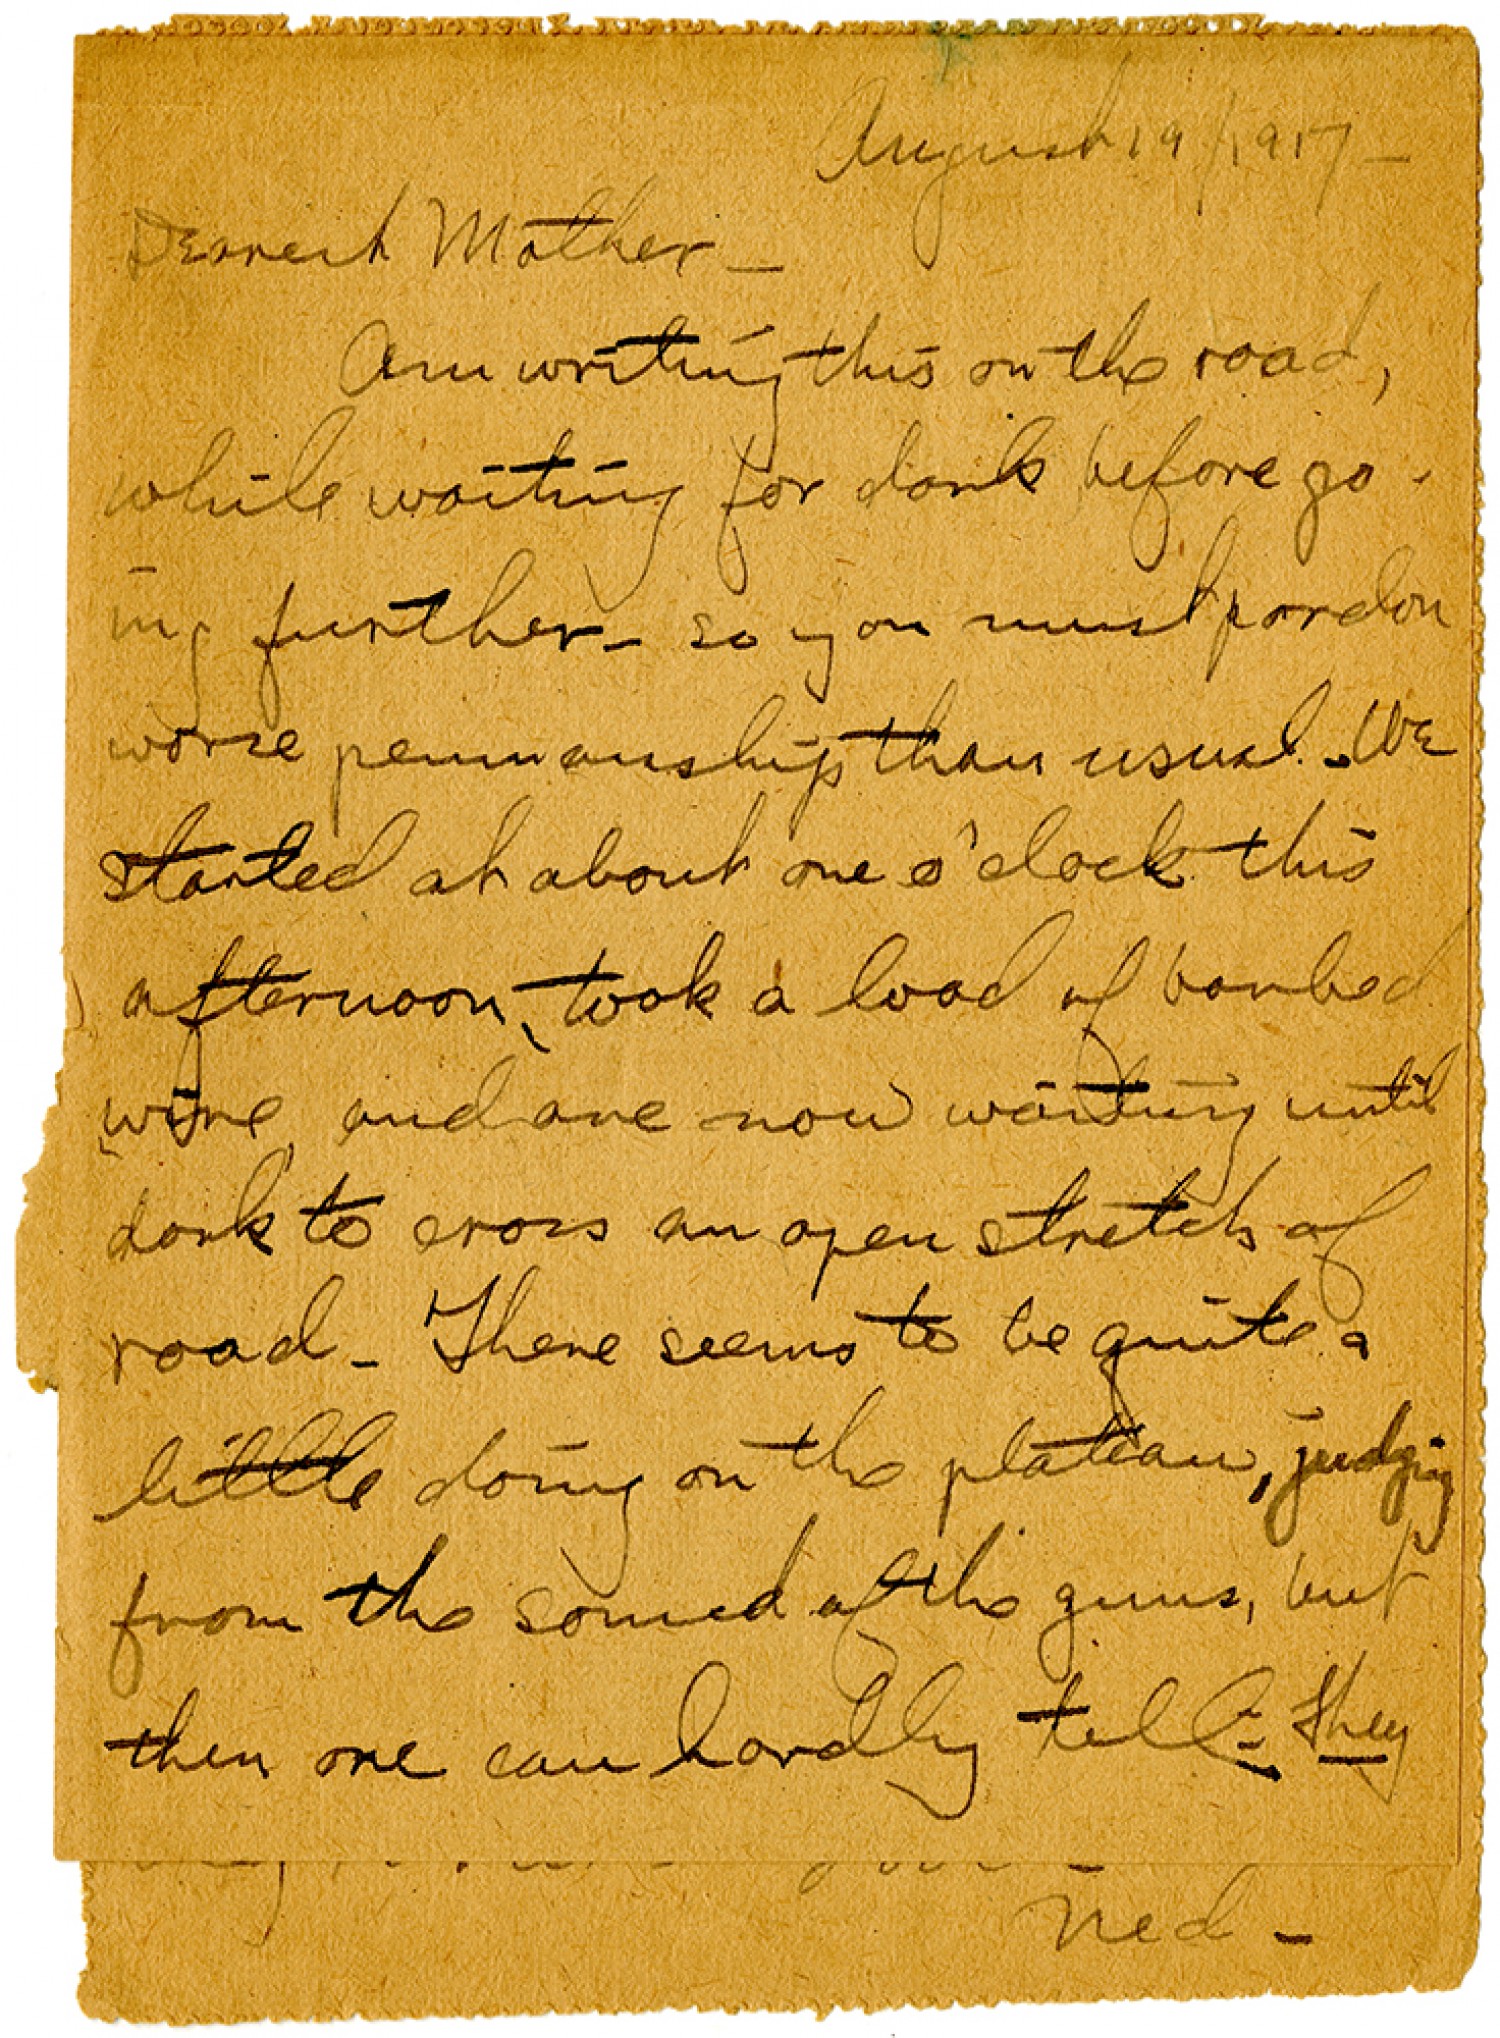 August 19/1917 -
Dearest Mother -
Am writing this on the road,
while waiting for dark before go-
ing further - so you must pardon
worse penmanship than usual. We
started at about one o'clock this
afternoon, took a load of barbed
wire, and are now waiting until
dark to cross an open stretch of
road - There seems to be quite a
little doing on the plateau, judging
from the sound of the guns, but
then one can hardly tell - They
Ned -